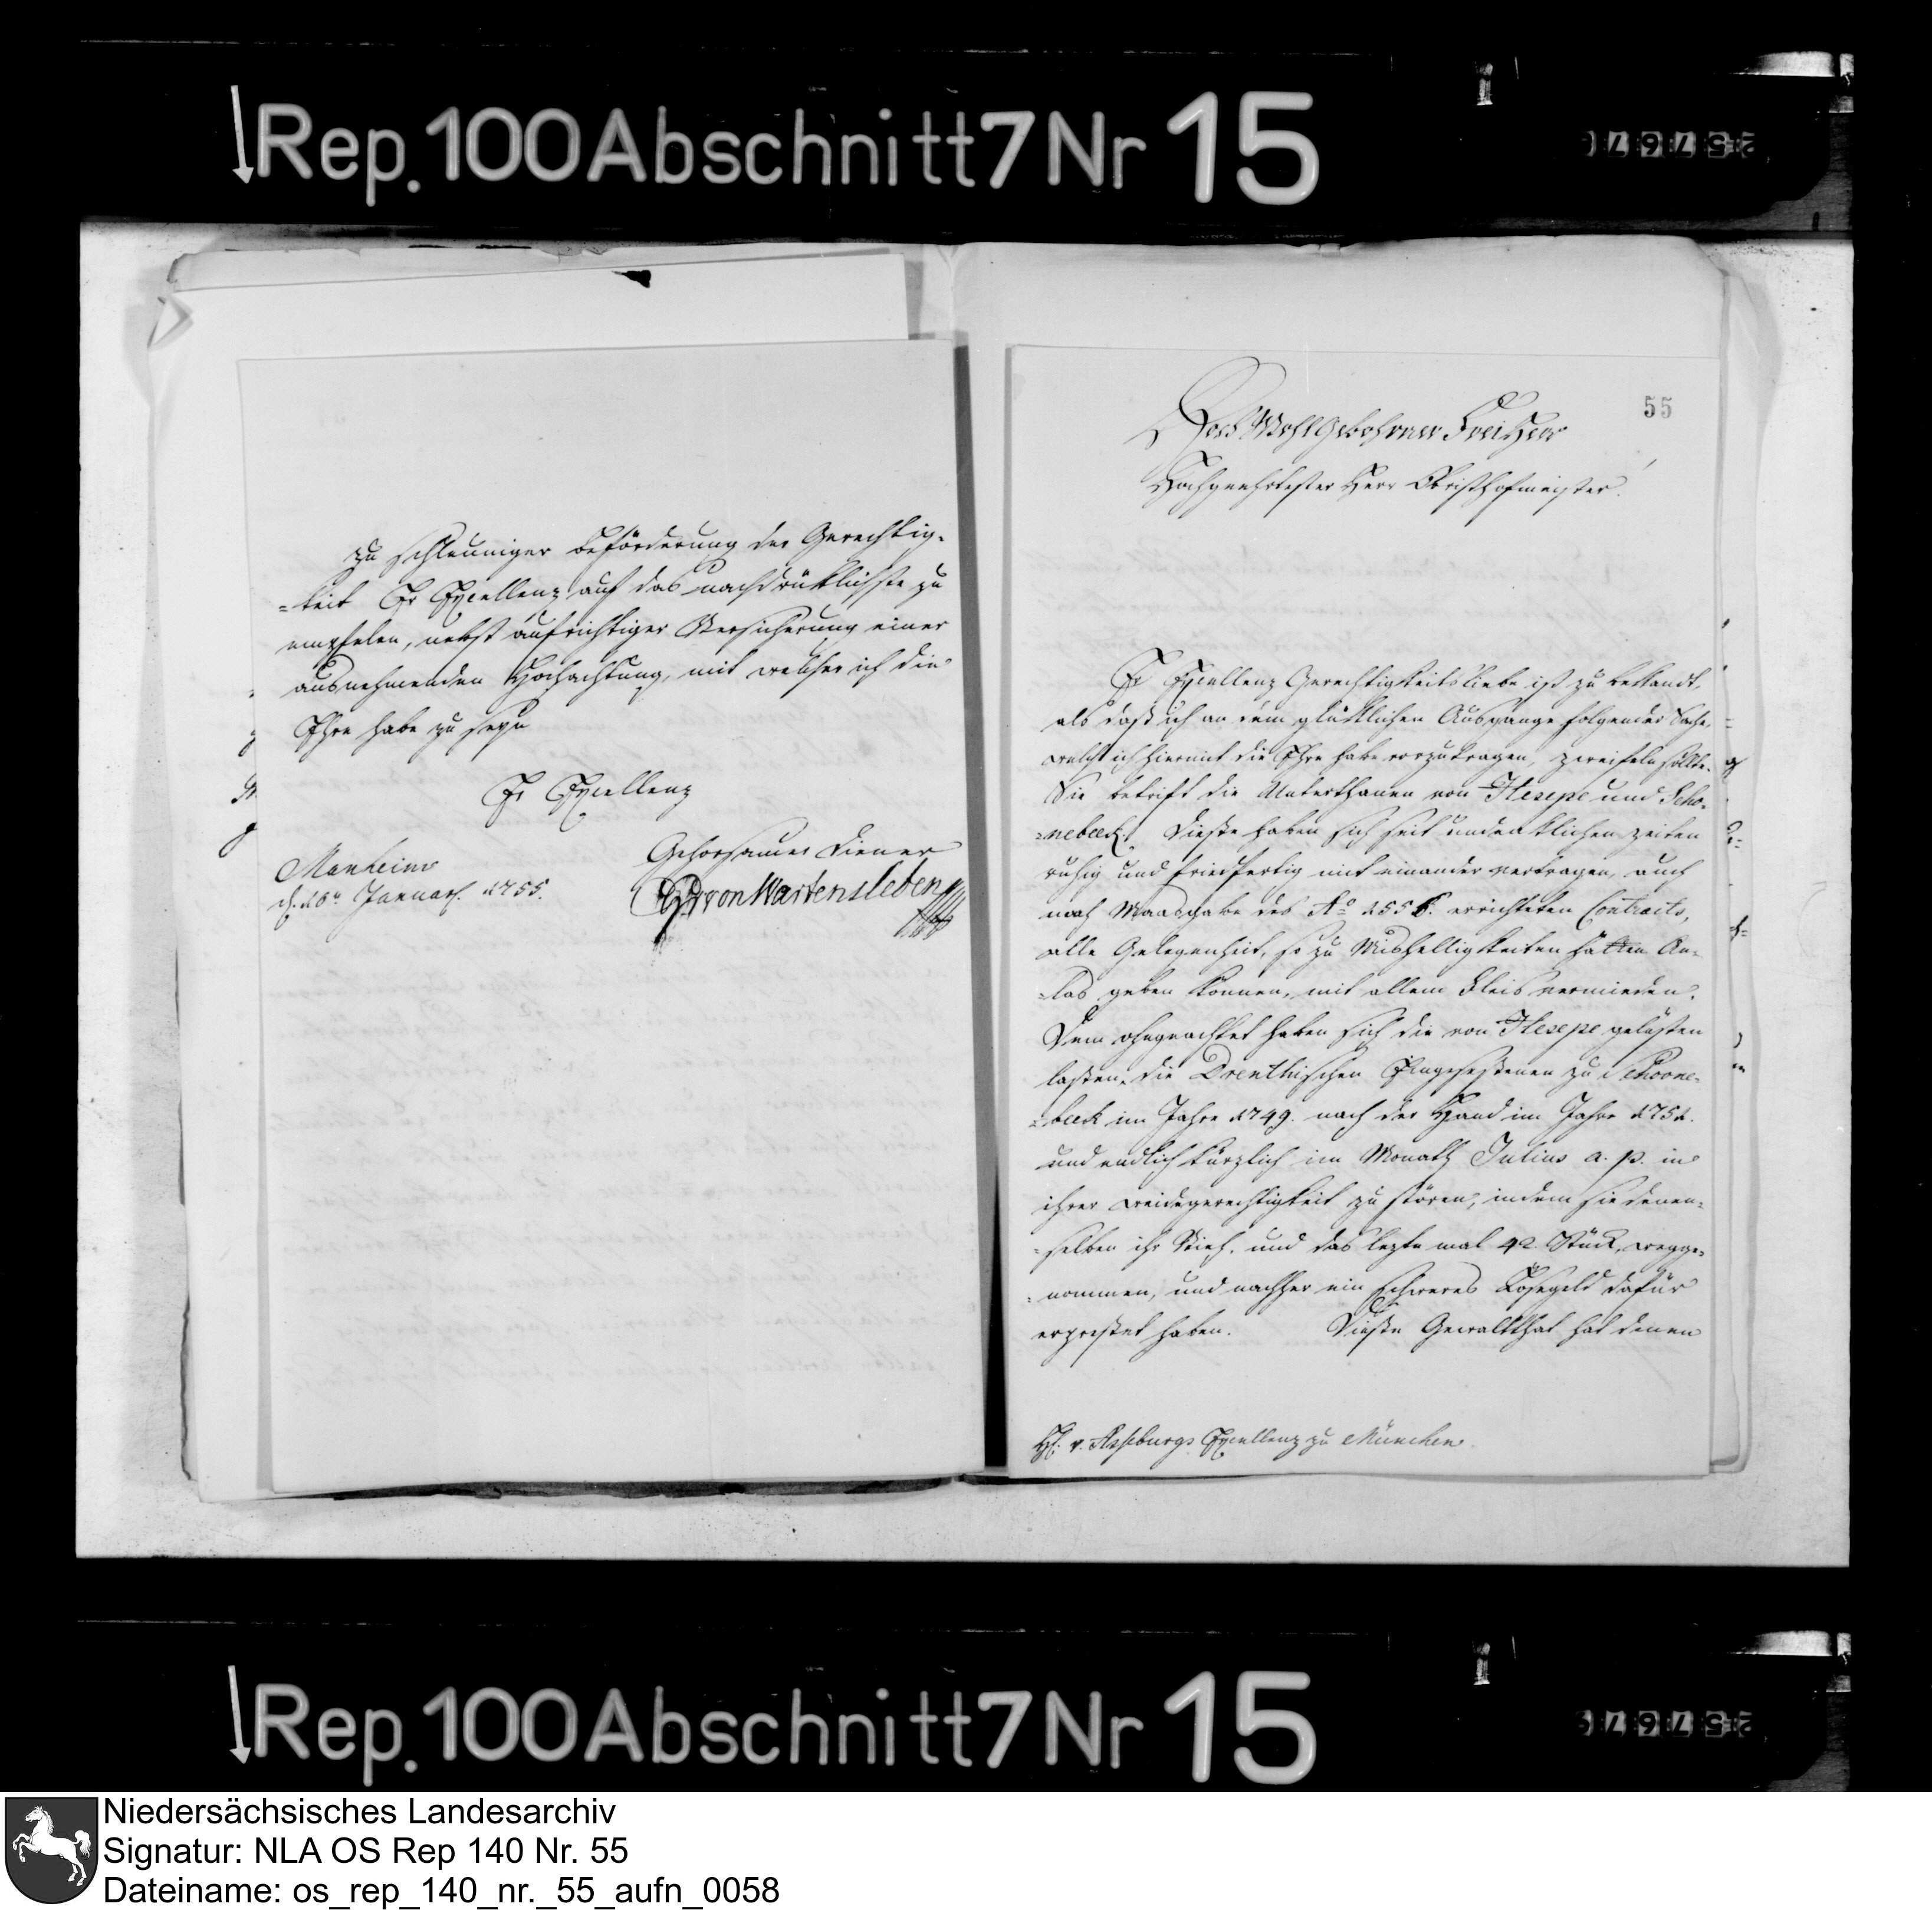 Rep. 100 Abschnitt 7 Nr 15
zu schleuniger Beförderung der Gerechtig-
=keit Er Excellenz auf das nachdrüklichste zu
empfelen, nebst aufrichtiger Versicherung einer
ausnehmenden Hochachtung, mit welcher ich die
Ehre habe zu seyn
Er Excellenz
Gehorsamer Diener
Manheim
d. 18n Januar. 1755.
von Wartensleben
55
HochWohlGebohrner FreiHerr
Hochgeehrtester Herr Obristhofmeister!
Er Excellenz Gerechtigkeitsliebe ist zu bekandt,
als daß ich an dem glüklichen Ausgange folgender Sache,
welche ich hiermit die Ehre habe vorzutragen, zweifeln solte.
Sie betrift die Unterthanen von Hesepe und Scho-
=nebeck. Dieße haben sich seit undenklichen zeiten
ruhig und friedfertig mit einander vertragen, auch
nach Maasgabe des Ao 1556. errichteten Contracts,
alle Gelegenheit, so zu Mishelligkeiten hätten An-
=las geben können, mit allem Fleis vermieden.
Dem ohngeachtet haben sich die von Hesepe gelüsten
laßen, die Drenthischen Eingeseßenen zu Schoone-
=beck im Jahre 1749. nach der Hand im Jahre 1751.
und endlich kürzlich im Monath Julius a. p. in
ihrer weidegerechtigkeit zu stören, indem sie denen-
=selben ihr Vieh, und das lezte mal 42. Stück, wegge-
=nommen, und nachher ein schweres Lösegeld dafür
erpreßet haben. Dieße Gewaltthat hat denen
H. v. Asseburgs Excellenz zu München
Rep. 100 Abschnitt 7 Nr 15
Niedersächsisches Landesarchiv
Signatur: NLA OS Rep 140 Nr. 55
Dateiname: os_rep_140_nr._55_aufn_0058